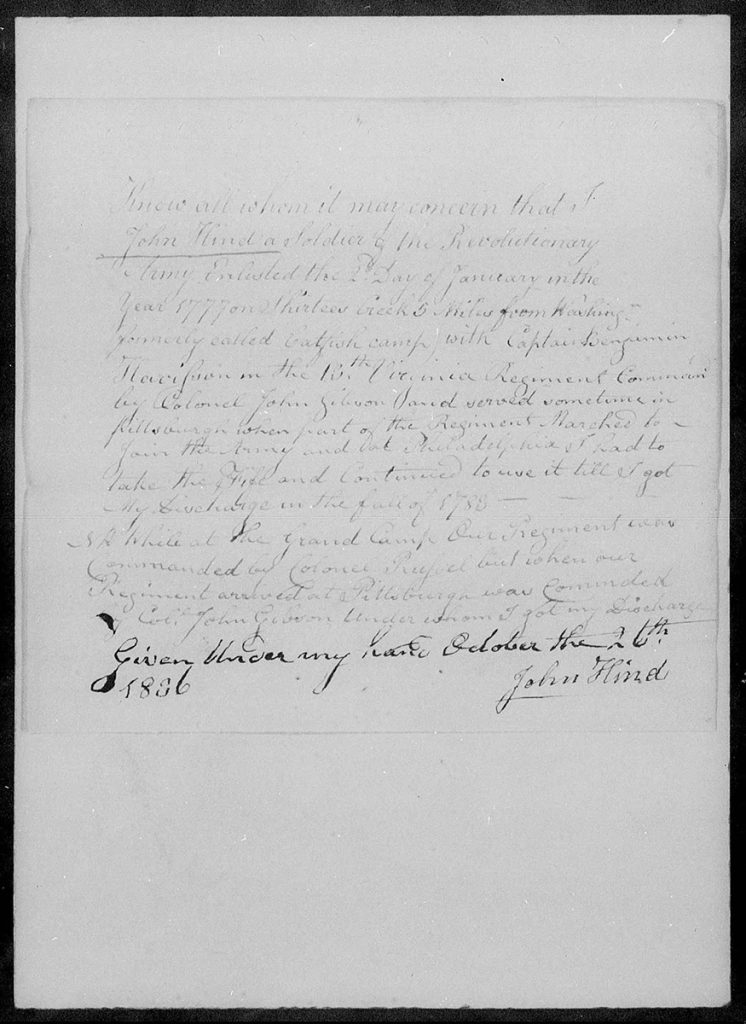 Know all whom it may concern that I
John Hind a Soldier of the Revolutionary
Army Enlisted the 2d Day of January in the
Year 1777 on Shirtees Creek 5 Miles from Washingn
formerly called Catfish camp) with Captain Benjamin
Harisson in the 13th Virginia Regiment Commandd
by Colonel John Gibson and served sometime in
Pittsburgh when part of the Regiment Marched to
Join the Army and at Philadelphia I had to
take the Fife and Continued to use it till I got
My Discharge in the fall of 1783 —
NB While at the Grand Camp Our Regiment was
Commanded by Colonel Russel but when our
Regiment arrived at Pittsburgh was Commded
by Col. John Gibson Under whom I got my Discharge
Given Under my hand October the 26th
1836 John Hind